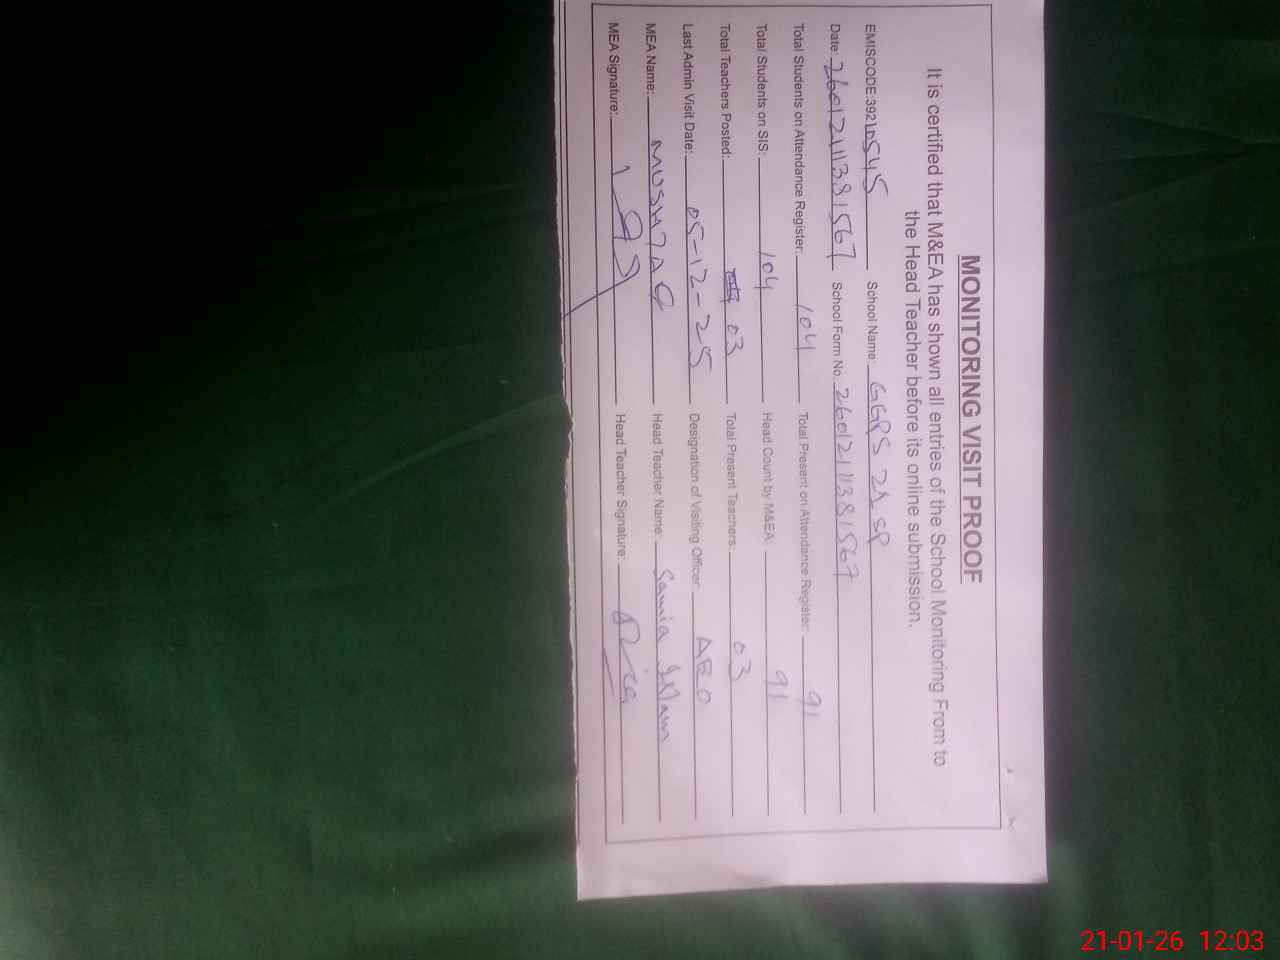 MONITORING VISIT PROOF
It is certified that M&EA has shown all entries of the School Monitoring From to
the Head Teacher before its online submission.
EMISCODE:39210545 School Name: GGPS 2A SP
Date: 26012111381567 School Form No. 26012111381567
Total Students on Attendance Register: 104 Total Present on Attendance Register: 91
Total Students on SIS: 104 Head Count by M&EA: 91
Total Teachers Posted: 03 Total Present Teachers: 03
Last Admin Visit Date: 05-12-25 Designation of Visiting Officer: AEO
MEA Name: MUSHTAQ Head Teacher Name: Samia Islam
MEA Signature: Head Teacher Signature:
21-01-26 12:03